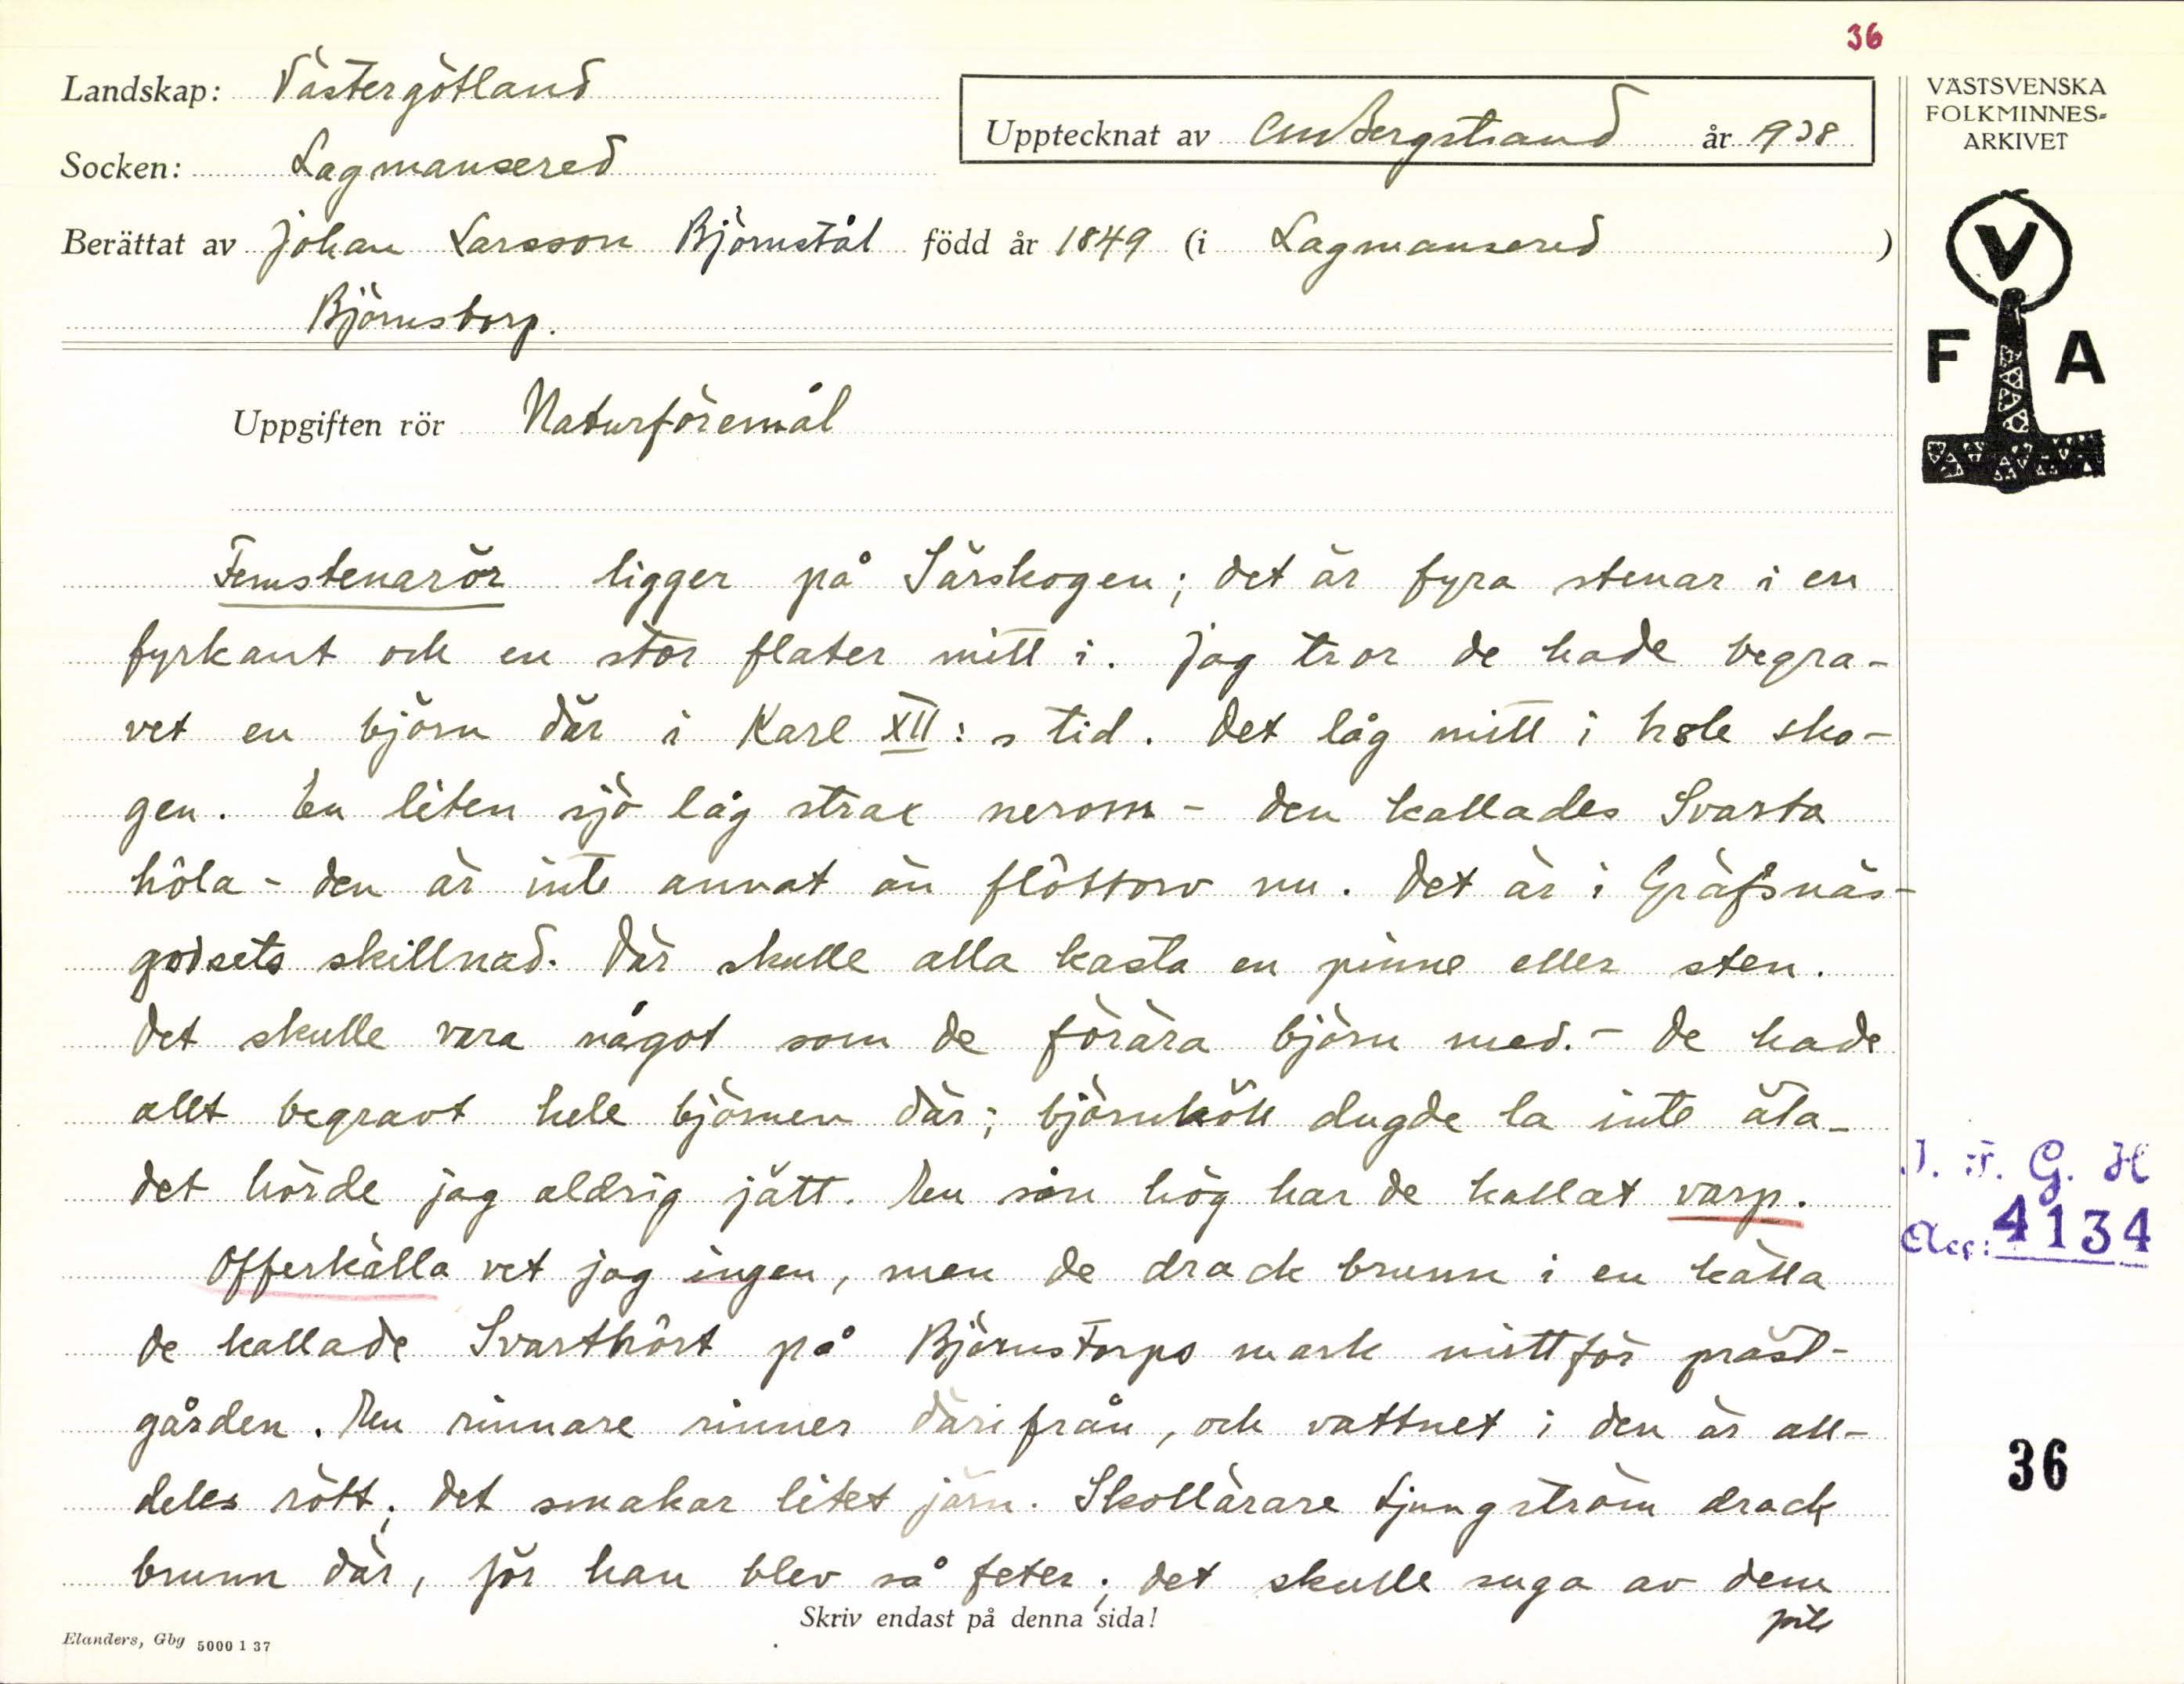 36
Landskap: Västergötland
Upptecknat av CM Bergstrand år 1938
VÄSTSVENSKA
FOLKMINNES-
ARKIVET
Socken: Lagmansered
Berättat av Johan Larsson Björnstål född år 1849 (i Lagmansered)
Björnstorp.
V
F A
Uppgiften rör Naturföremål
Femstenarör ligger på Särskogen; det är fyra stenar i en
fyrkant och en stor flater mitt i. Jag tror de hade begra-
vet en björn där i Karl XII:s tid. Det låg mitt i hole sko-
gen. En liten sjö låg strax nerom - den kallades Svarta
hôla - den är inte annat än flôttorv nu. Det är i Gräfsnäs-
godsets skillnad. Där skulle alla kasta en pinne eller sten.
Det skulle vara något som de förära björn med. - De hade
allt begravt hele björnen där; björnkött dugde la inte äta -
det hörde jag aldrig jätt. En sån hög har de kallat varp.
Offerkälla vet jag ingen, men de drack brunn i en källa
de kallade Svarthôrt på Björnstorps mark mittför präst-
gården. En rinnare rinner därifrån, och vattnet i den är all-
deles rött; det smakar litet järn. Skollärare Ljungström drack
brunn där, för han blev så feter; det skulle suga av dem
Skriv endast på denna sida!
Elanders, Gbg 5000 1 37
I. F. G. H
Acc: 4134
36